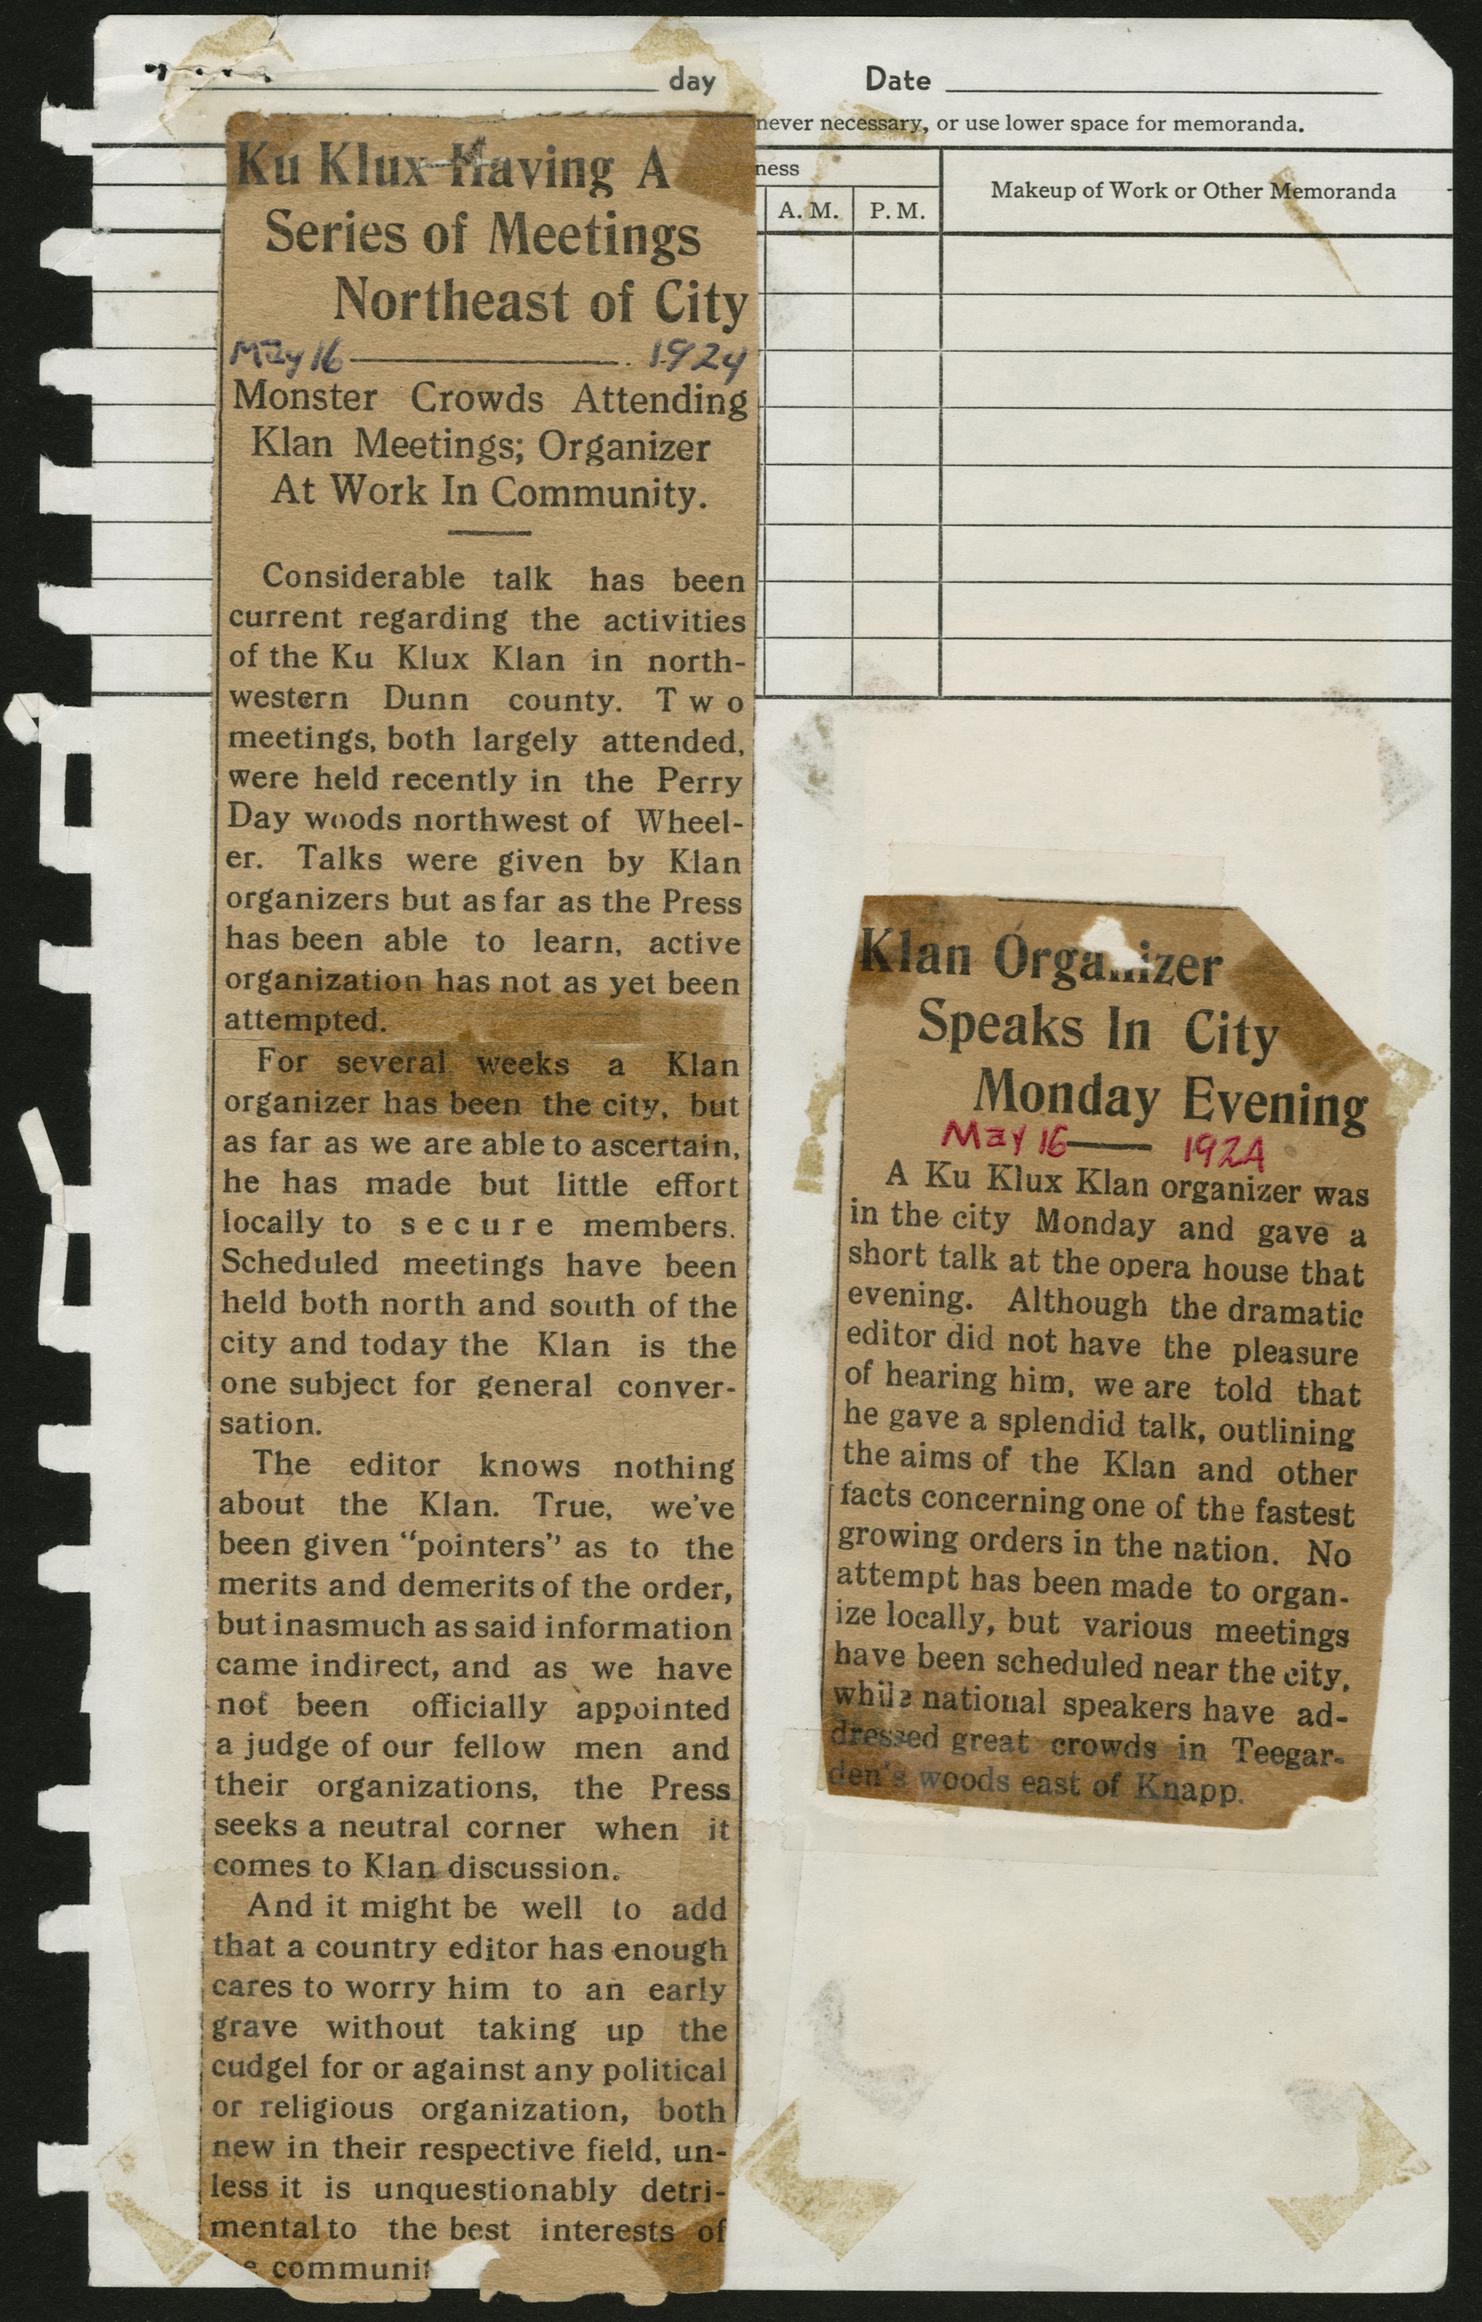 day Date
never necessary, or use lower space for memoranda.
ness
A. M. P. M.
Makeup of Work or Other Memoranda
Ku Klux Having A
Series of Meetings
Northeast of City
May 16 1924
Monster Crowds Attending
Klan Meetings; Organizer
At Work In Community.
Considerable talk has been
current regarding the activities
of the Ku Klux Klan in north-
western Dunn county. Two
meetings, both largely attended,
were held recently in the Perry
Day woods northwest of Wheel-
er. Talks were given by Klan
organizers but as far as the Press
has been able to learn, active
organization has not as yet been
attempted.
For several weeks a Klan
organizer has been the city, but
as far as we are able to ascertain,
he has made but little effort
locally to secure members.
Scheduled meetings have been
held both north and south of the
city and today the Klan is the
one subject for general conver-
sation.
The editor knows nothing
about the Klan. True, we've
been given "pointers" as to the
merits and demerits of the order,
but inasmuch as said information
came indirect, and as we have
not been officially appointed
a judge of our fellow men and
their organizations, the Press
seeks a neutral corner when it
comes to Klan discussion.
And it might be well to add
that a country editor has enough
cares to worry him to an early
grave without taking up the
cudgel for or against any political
or religious organization, both
new in their respective field, un-
less it is unquestionably detri-
mental to the best interests of
communit
Klan Organizer
Speaks In City
Monday Evening
May 16 1924
A Ku Klux Klan organizer was
in the city Monday and gave a
short talk at the opera house that
evening. Although the dramatic
editor did not have the pleasure
of hearing him, we are told that
he gave a splendid talk, outlining
the aims of the Klan and other
facts concerning one of the fastest
growing orders in the nation. No
attempt has been made to organ-
ize locally, but various meetings
have been scheduled near the city,
while national speakers have ad-
dressed great crowds in Teegar-
den's woods east of Knapp.